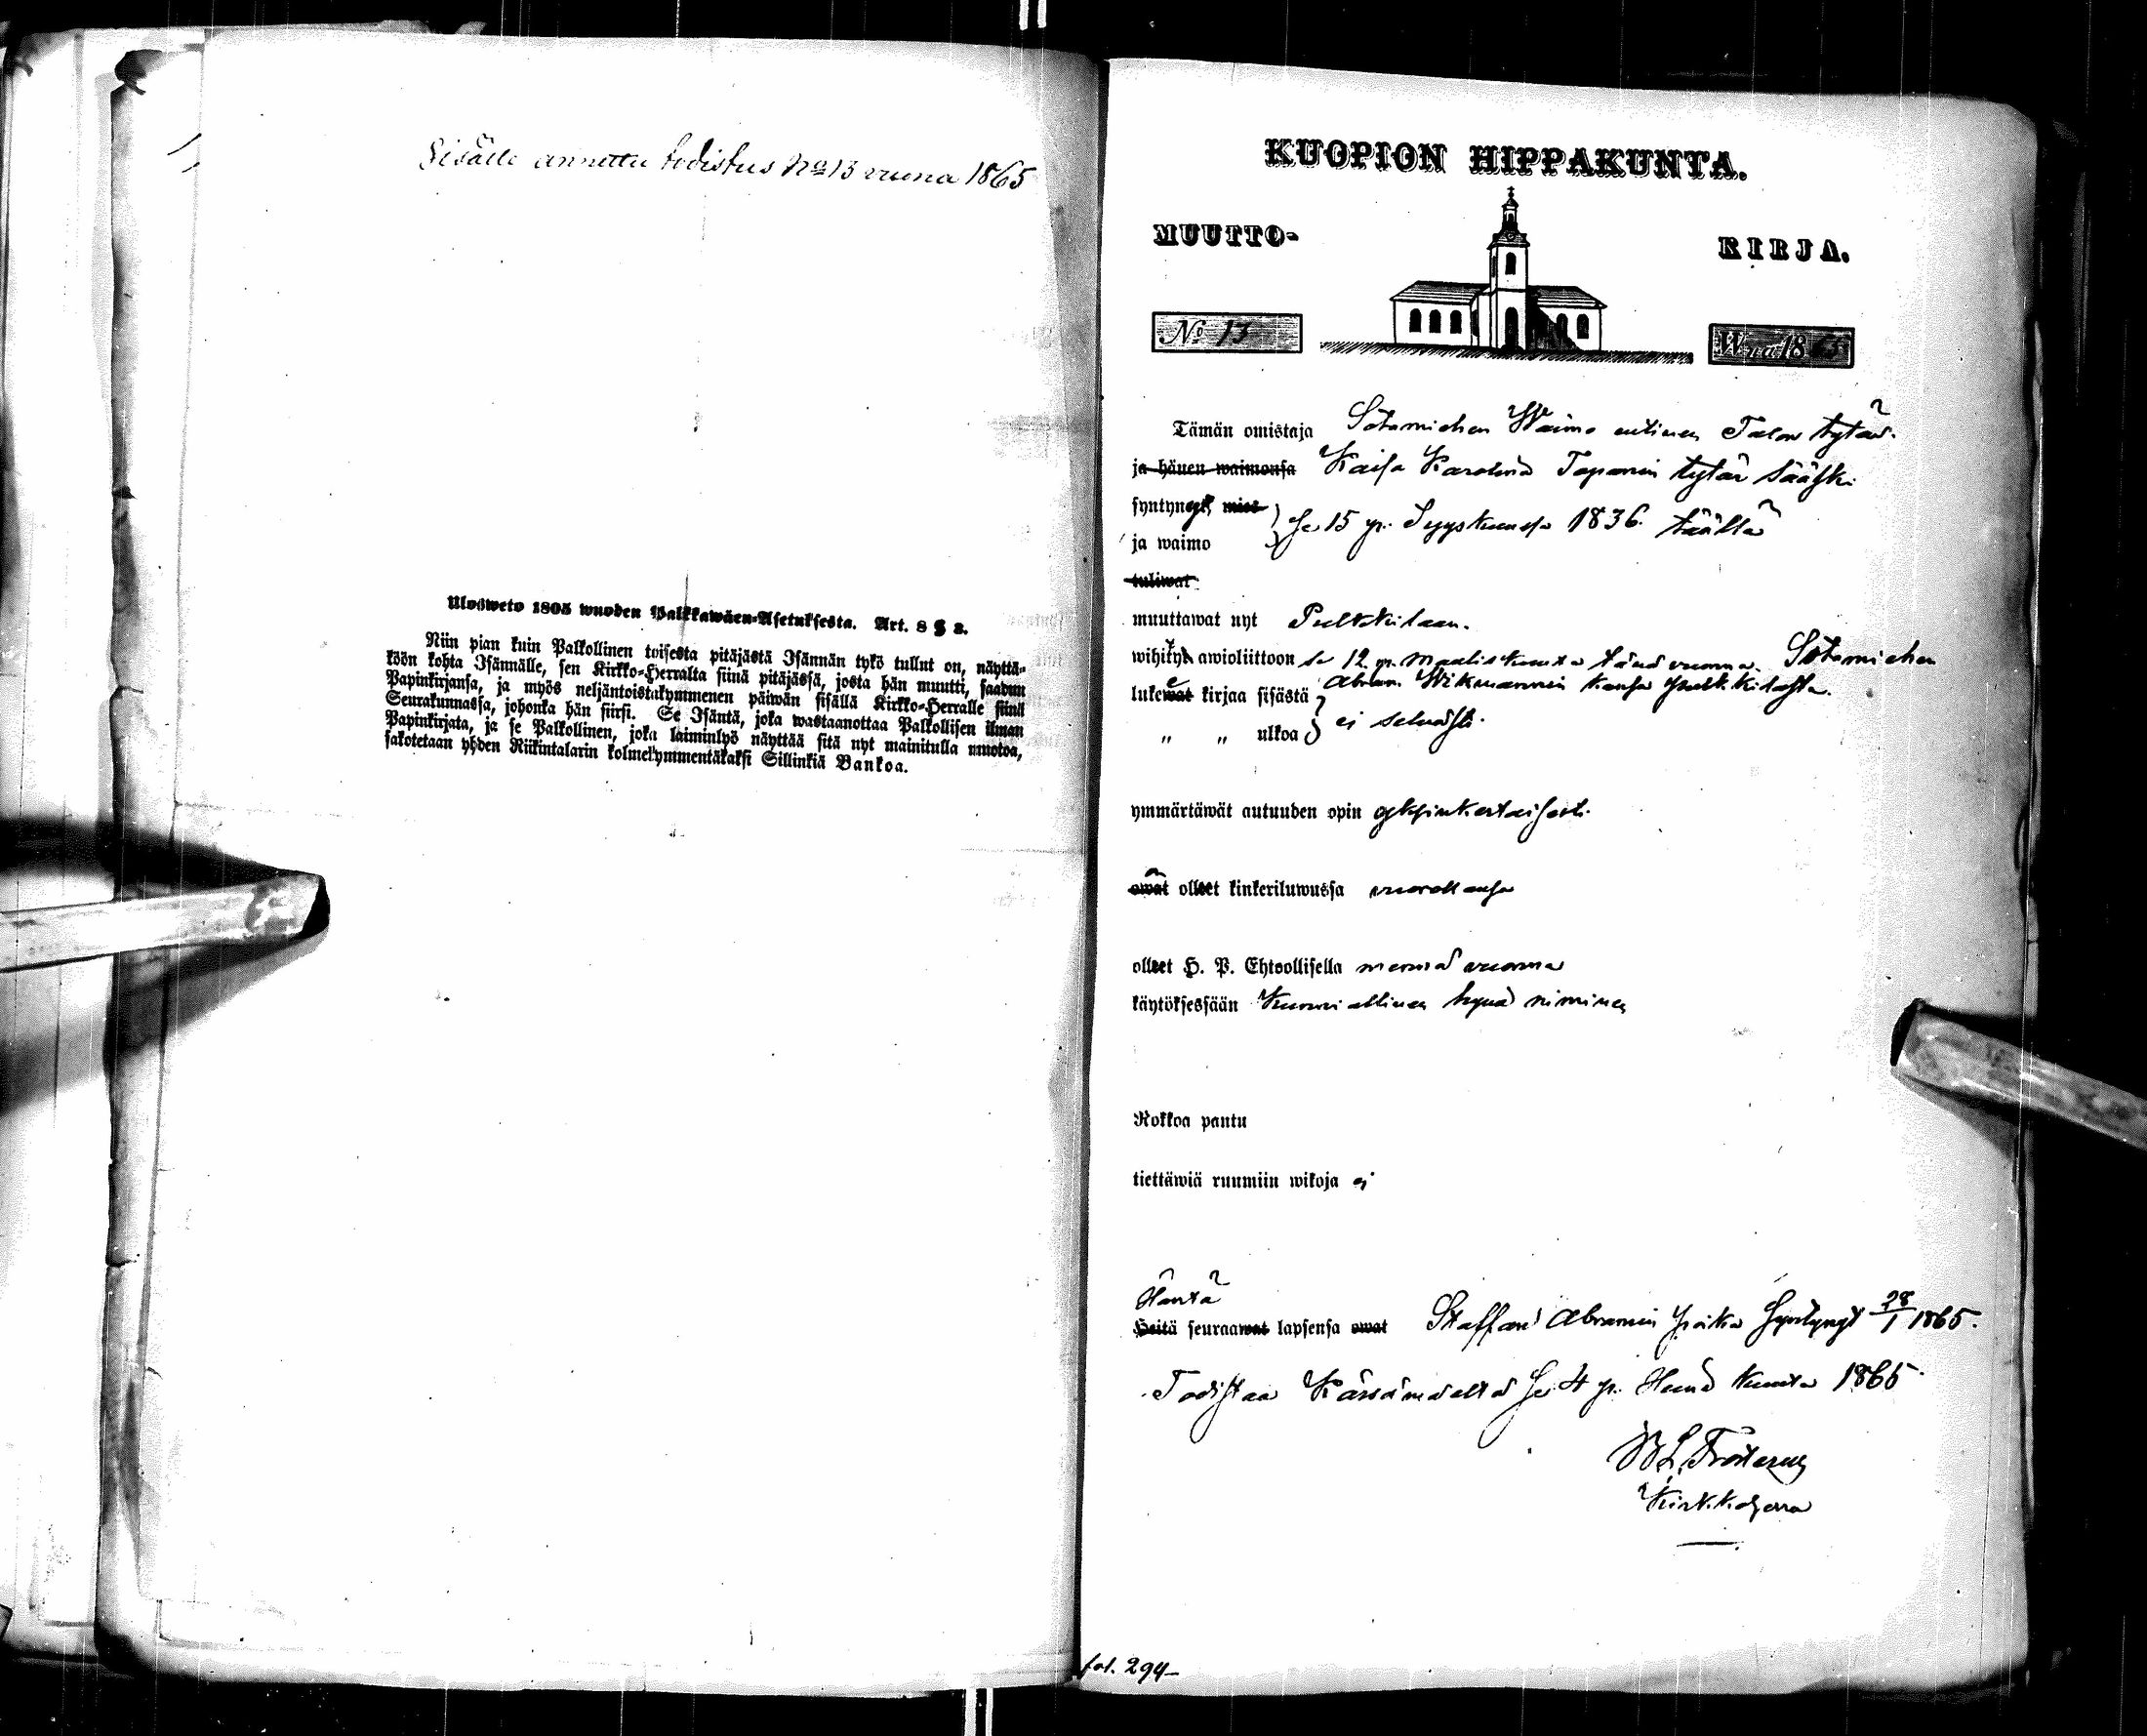 Sisälle annettu todistus No 13 vuona 1865
Ulosweto 1805 wuoden Palkkawäen-Asetuksesta. Art. 8 § 2.
Niin pian kuin Palkollinen toisesta pitäjästä Isännän tykö tullut on, näyttä-
köön kohta Isännälle, sen Kirkko-Herralta siinä pitäjässä, josta hän muutti, saadun
Papinkirjansa, ja myös neljäntoistakymmenen päiwän sisällä Kirkko-Herralle siinä
Seurakunnassa, johonka hän siirsi. Se Isäntä, joka wastaanottaa Palkollisen ilman
Papinkirjata, ja se Palkollinen, joka laiminlyö näyttää sitä nyt mainitulla muotoa,
sakotetaan yhden Riikintalarin kolmekymmentäkaksi Sillinkiä Bankoa.
KUOPION HIPPAKUNTA.
MUUTTO- KIRJA.
No 13 Wna 1865
Tämän omistaja Sotamiehen Waimo entinen Talon tytär
ja hänen waimonsa Kaisa Karolina Tapanin tytär Sääski
syntynyt mies
se 15 p. Syyskuussa 1836 täällä
ja waimo
tuliwat
muuttawat nyt Pulkkilaan.
wihitty awioliittoon se 12 p. Maaliskuuta tänä vuonna Sotamiehen
Abram Wikmannin kansa Pulkkilasta.
lukewat kirjaa sisästä
ei selwästi.
" " ulkoa
ymmärtäwät autuuden opin yksinkertaisesti.
owat olleet kinkeriluwussa vuorollansa
olleet H. P. Ehtoollisella menna vuonna
käytöksessään Kunniallinen hywä niminen
Rokkoa pantu
tiettäwiä ruumiin wikoja ei
Häntä
Heitä seuraawat lapsensa owat Staffan Abramin poika Syntynyt 28/1 1865.
Todistaa Kärsämäeltä se 4 p. Heinä kuuta 1865
Kirkkoherra
fol. 294